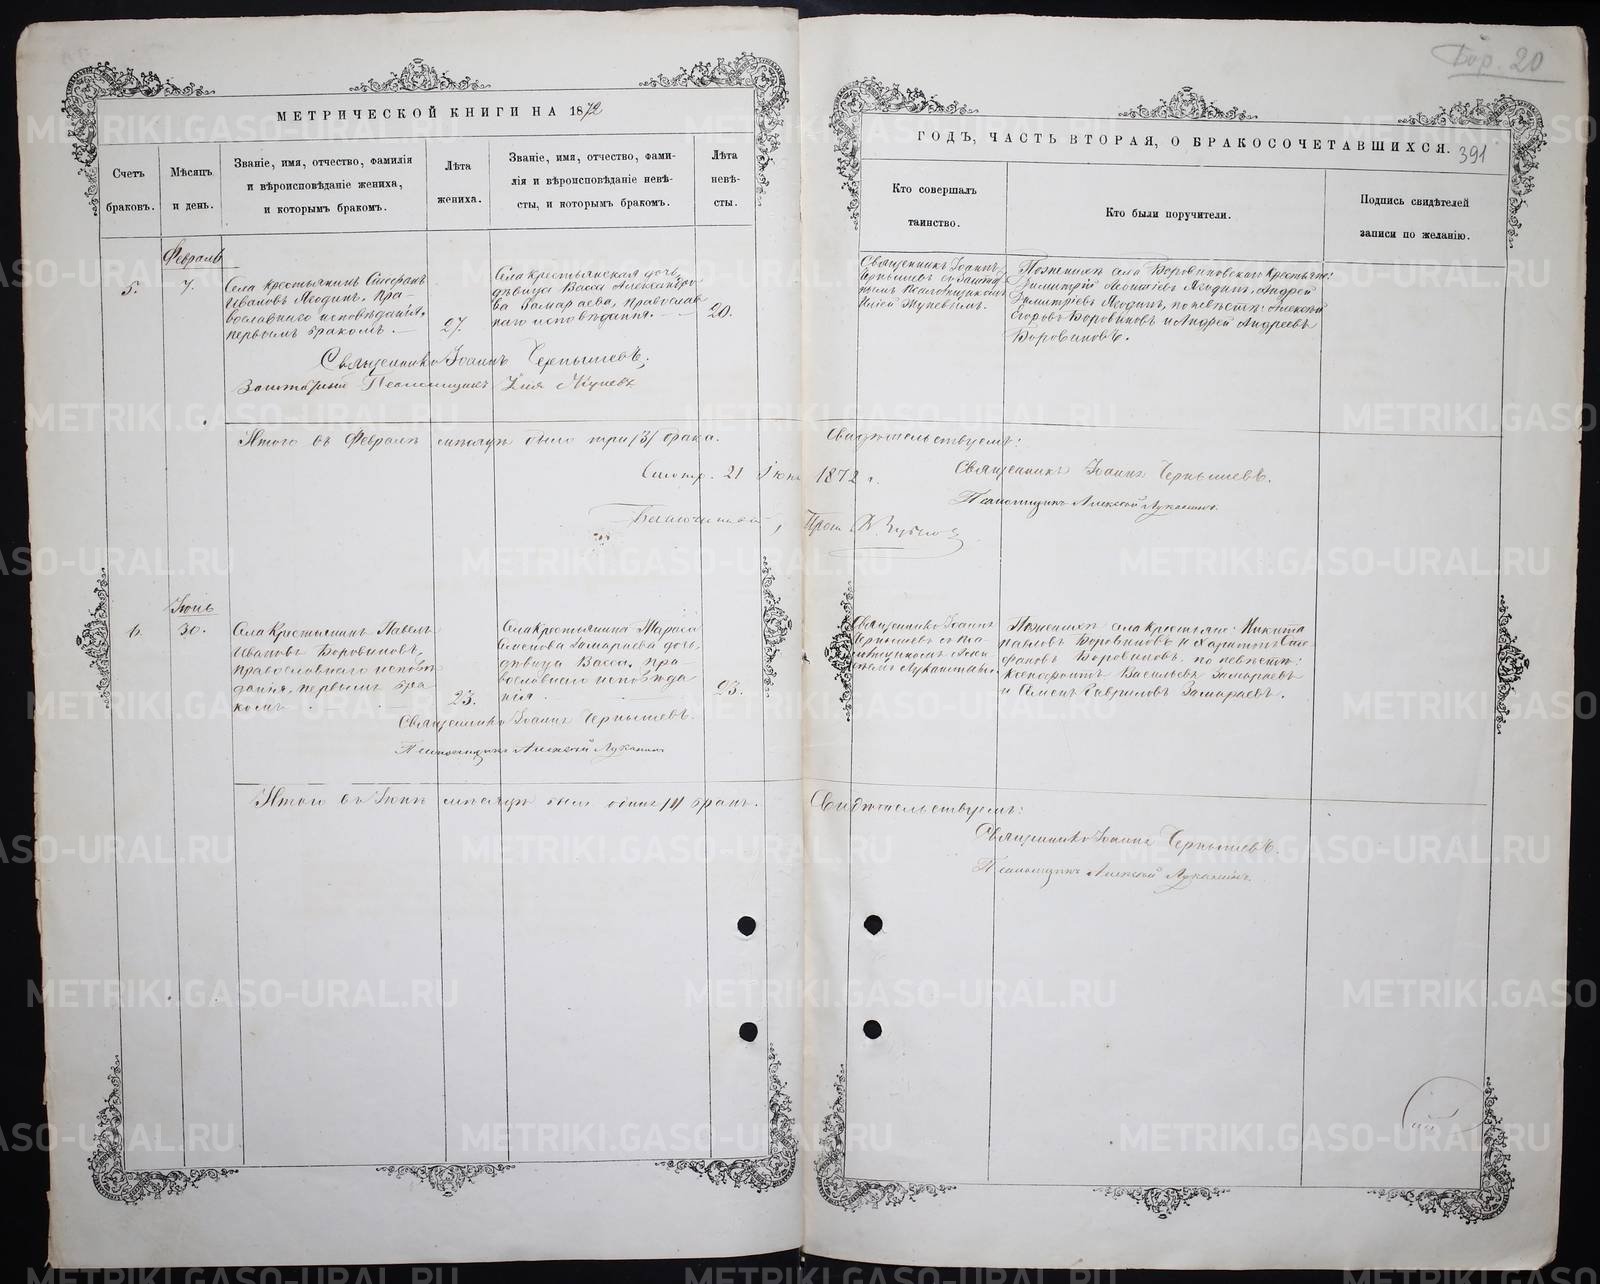 Бор. 20
МЕТРИЧЕСКОЙ КНИГИ НА 1872
Счетъ браковъ.
Мѣсяцъ и день.
Званіе, имя, отчество, фамилія
и вѣроисповѣданіе жениха,
и которымъ бракомъ.
Лѣта
жениха.
Званіе, имя, отчество, фами-
лія и вѣроисповѣданіе невѣ-
сты, и которымъ бракомъ.
Лѣта
невѣ-
сты.
Февраль
5.
7.
Села крестьянинъ Стефанъ
Ивановъ Ягодинъ, пра-
вославнаго исповѣданія,
первымъ бракомъ.
27.
Села крестьянская дочь
дѣвица Васса Александро
ва Замараева, православ
наго исповѣданія.
20.
Священникъ Іоаннъ Чернышевъ;
Заштатный Псаломщикъ Илія
Итого въ Февралѣ мѣсяцѣ было три /3/ брака.
Смотр. 21 Іюня
Іюнь
6.
30.
Села Крестьянинъ Павелъ
Ивановъ Боровиковъ,
православнаго исповѣ
данія, первымъ бра
комъ
23.
Села Крестьянина Тараса
Семенова Замараева дочь,
дѣвица Васса, пра
вославнаго исповѣда
нія.
23.
Священникъ Іоаннъ Чернышевъ.
Псаломщикъ Алексѣй Луканинъ
Итого въ Іюнѣ мѣсяцѣ былъ одинъ /1/ бракъ.
ГОДЪ, ЧАСТЬ ВТОРАЯ, О БРАКОСОЧЕТАВШИХСЯ.
391
Кто совершалъ
таинство.
Кто были поручители.
Подпись свидѣтелей
записи по желанію.
Священникъ Іоаннъ
Чернышевъ съ Заштат
нымъ Псаломщикомъ
Иліей
По женихѣ села Боровиковскаго Крестьяне:
Димитрій Ягодинъ, Андрей
Димитріевъ Ягодинъ, по невѣстѣ: Алексѣй
Егоровъ Боровиковъ и Андрей Андреевъ
Боровиковъ.
Свидѣтельствуемъ:
1872 г.
Священникъ Іоаннъ Чернышевъ.
Псаломщикъ Алексѣй Луканинъ.
Священникъ Іоаннъ
Чернышевъ съ Пса
ломщикомъ Алек
сѣемъ Луканинымъ.
По женихѣ села крестьяне: Никита
Павловъ Боровиковъ и Харитонъ Сте
фановъ Боровиковъ, по невѣстѣ:
Ксенофонтъ Васильевъ Замараевъ
и Семенъ Гавриловъ Замараевъ.
Свидѣтельствуемъ:
Священникъ Іоаннъ Чернышевъ.
Псаломщикъ Алексѣй Луканинъ.
METRIKI.GASO-URAL.RU